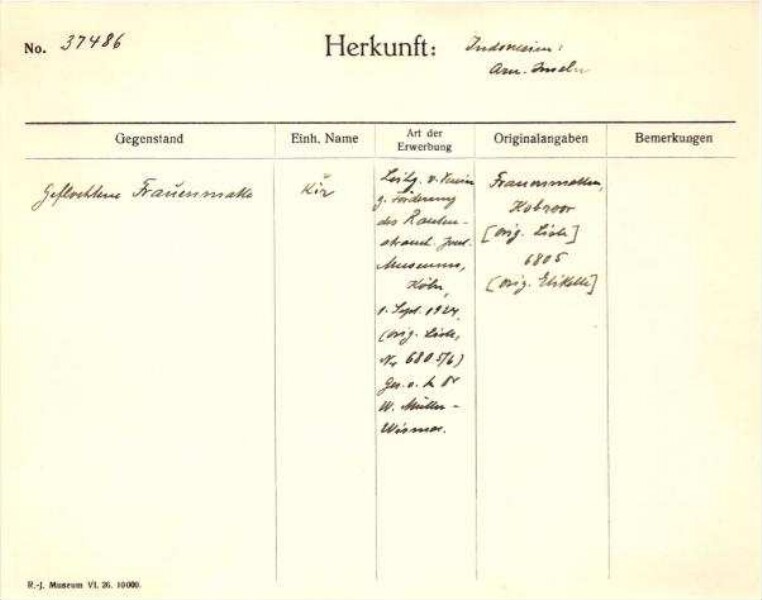 No. 37486
Herkunft: Indonesien:
Aru-Inseln
Gegenstand
Einh. Name
Art der
Erwerbung
Originalangaben
Bemerkungen
Geflochtene Frauenmatte
Kir
Leihg. v. Verein
z. Förderung
des Rauten-
strauch-Joest-
Museums,
Köln,
1. Sept. 1924
(orig. Liste,
Nr. 6805/6)
Ges. v. Dr
W. Müller-
Wismar.
Frauenmatten,
Kobroor
[orig. Liste]
6805
[orig. Etikette]
R.-J. Museum VI. 26. 10000.